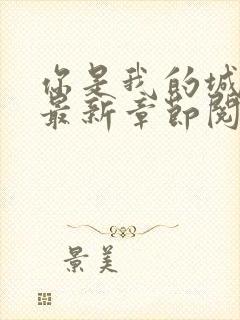 你是我的城
最新章节阅
景美